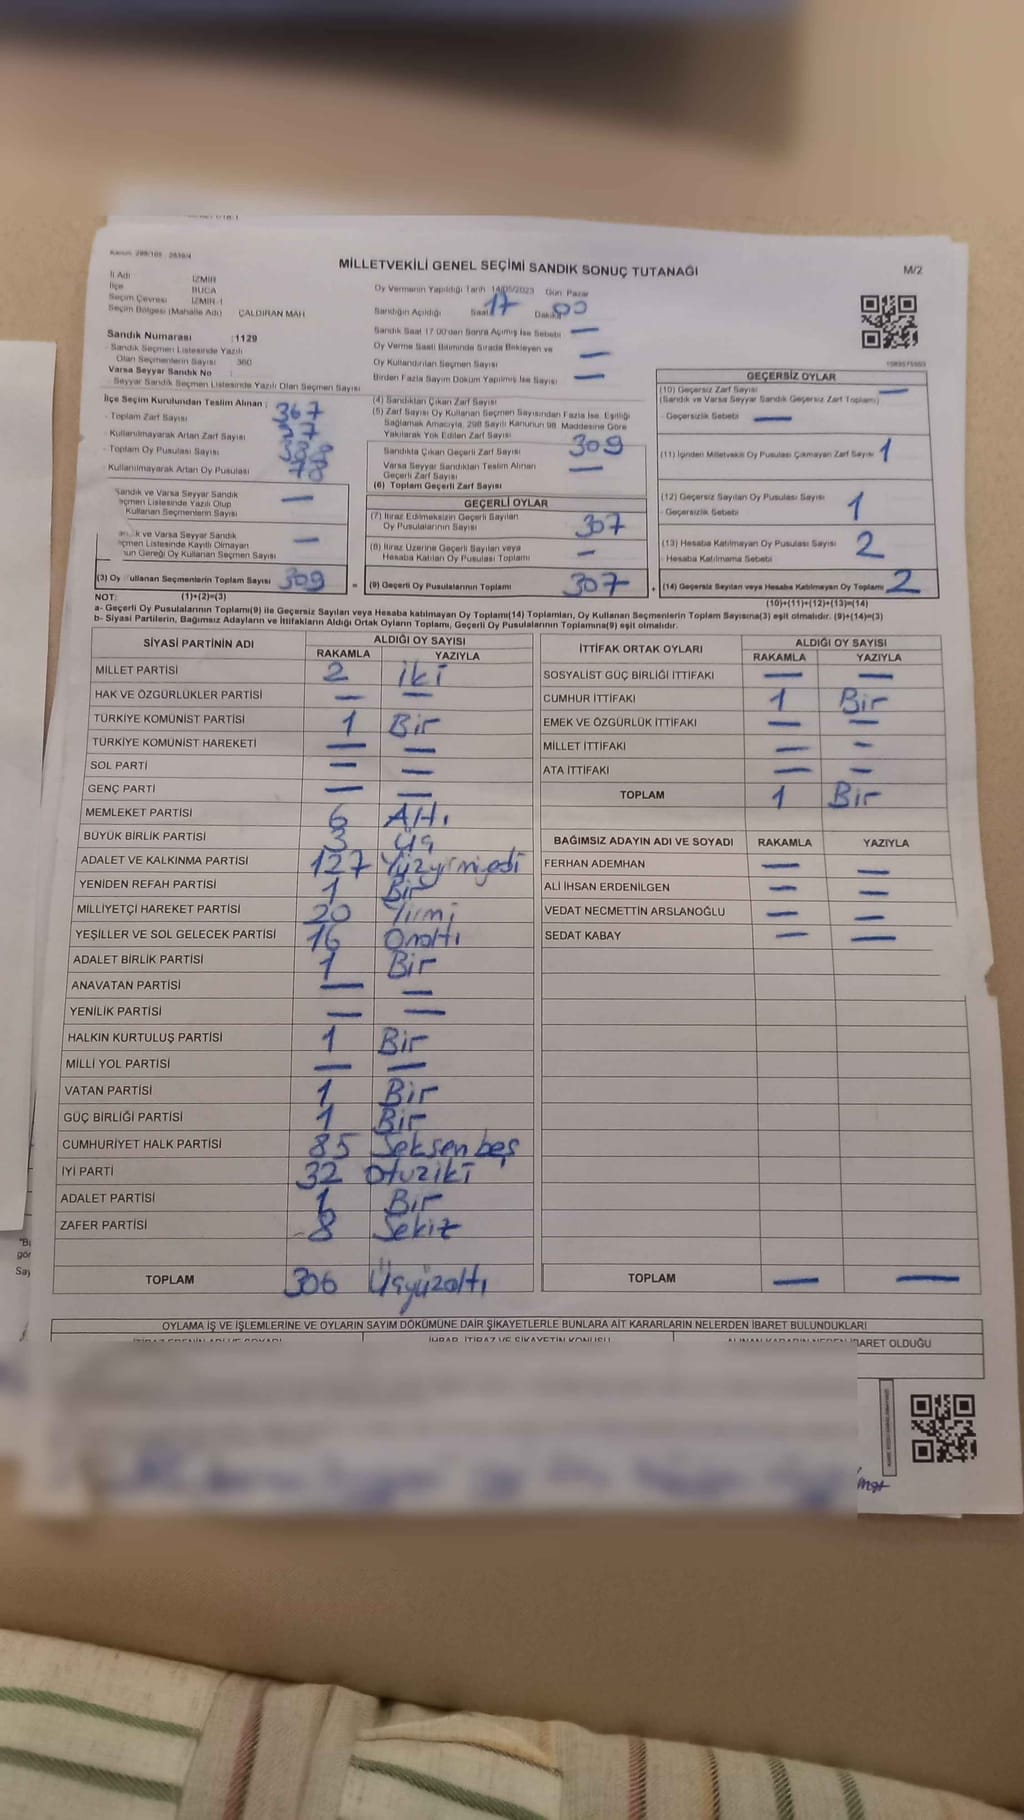 MİLLETVEKİLİ GENEL SEÇİMİ SANDIK SONUÇ TUTANAĞI
M/2
İl Adı İZMİR
İlçe BUCA
Seçim Çevresi İZMİR-1
Seçim Bölgesi (Mahalle Adı) ÇALDIRAN MAH
Oy Vermenin Yapıldığı Tarih 14/05/2023 Gün Pazar
Sandığın Açıldığı Saat 17 Dakika 00
Sandık Numarası :1129
Sandık Seçmen Listesinde Yazılı
Olan Seçmenlerin Sayısı 360
Varsa Seyyar Sandık No :
Seyyar Sandık Seçmen Listesinde Yazılı Olan Seçmen Sayısı
Sandık Saat 17 00'dan Sonra Açımış İse Sebebi —
Oy Verme Saati Bitiminde Sırada Bekleyen ve
Oy Kullandırılan Seçmen Sayısı —
Birden Fazla Sayım Döküm Yapılmış İse Sayısı —
İlçe Seçim Kurulundan Teslim Alınan :
- Toplam Zarf Sayısı 367
- Kullanılmayarak Artan Zarf Sayısı
- Toplam Oy Pusulası Sayısı
- Kullanılmayarak Artan Oy Pusulası 78
Sandık ve Varsa Seyyar Sandık
Seçmen Listesinde Yazılı Olup
Kullanan Seçmenlerin Sayısı —
ve Varsa Seyyar Sandık
Listesinde Kayıtlı Olmayan
Gereği Oy Kullanan Seçmen Sayısı —
(3) Oy Kullanan Seçmenlerin Toplam Sayısı 309
(4) Sandıktan Çıkan Zarf Sayısı
(5) Zarf Sayısı Oy Kullanan Seçmen Sayısından Fazla İse, Eşitliği
Sağlamak Amacıyla, 298 Sayılı Kanunun 98. Maddesine Göre
Yakılarak Yok Edilen Zarf Sayısı
Sandıkta Çıkan Geçerli Zarf Sayısı 309
Varsa Seyyar Sandıktan Teslim Alınan
Geçerli Zarf Sayısı —
(6) Toplam Geçerli Zarf Sayısı
GEÇERLİ OYLAR
(7) İtiraz Edilmeksizin Geçerli Sayılan
Oy Pusulalarının Sayısı 307
(8) İtiraz Üzerine Geçerli Sayılan veya
Hesaba Katılan Oy Pusulası Toplamı —
= (9) Geçerli Oy Pusulalarının Toplamı 307
GEÇERSİZ OYLAR
(10) Geçersiz Zarf Sayısı —
(Sandık ve Varsa Seyyar Sandık Geçersiz Zarf Toplamı)
- Geçersizlik Sebebi —
(11) İçinden Milletvekili Oy Pusulası Çıkmayan Zarf Sayısı 1
(12) Geçersiz Sayılan Oy Pusulası Sayısı
- Geçersizlik Sebebi 1
(13) Hesaba Katılmayan Oy Pusulası Sayısı 2
- Hesaba Katılmama Sebebi
+ (14) Geçersiz Sayılan veya Hesaba Katılmayan Oy Toplamı 2
NOT: (1)+(2)=(3)
(10)+(11)+(12)+(13)=(14)
a- Geçerli Oy Pusulalarının Toplamı(9) ile Geçersiz Sayılan veya Hesaba katılmayan Oy Toplamı(14) Toplamları, Oy Kullanan Seçmenlerin Toplam Sayısına(3) eşit olmalıdır. (9)+(14)=(3)
b- Siyasi Partilerin, Bağımsız Adayların ve İttifakların Aldığı Ortak Oyların Toplamı, Geçerli Oy Pusulalarının Toplamına(9) eşit olmalıdır.
SİYASİ PARTİNİN ADI ALDIĞI OY SAYISI
RAKAMLA YAZIYLA
MİLLET PARTİSİ 2 iki
HAK VE ÖZGÜRLÜKLER PARTİSİ — —
TÜRKİYE KOMÜNİST PARTİSİ 1 Bir
TÜRKİYE KOMÜNİST HAREKETİ — —
SOL PARTİ — —
GENÇ PARTİ — —
MEMLEKET PARTİSİ 6 Altı
BÜYÜK BİRLİK PARTİSİ 3 Üç
ADALET VE KALKINMA PARTİSİ 127 Yüzyirmiyedi
YENİDEN REFAH PARTİSİ 1 Bir
MİLLİYETÇİ HAREKET PARTİSİ 20 Yirmi
YEŞİLLER VE SOL GELECEK PARTİSİ 16 Onaltı
ADALET BİRLİK PARTİSİ 1 Bir
ANAVATAN PARTİSİ — —
YENİLİK PARTİSİ — —
HALKIN KURTULUŞ PARTİSİ 1 Bir
MİLLİ YOL PARTİSİ — —
VATAN PARTİSİ 1 Bir
GÜÇ BİRLİĞİ PARTİSİ 1 Bir
CUMHURİYET HALK PARTİSİ 85 Seksen beş
İYİ PARTİ 32 Otuziki
ADALET PARTİSİ 1 Bir
ZAFER PARTİSİ 8 Sekiz
TOPLAM 306 Üçyüzaltı
İTTİFAK ORTAK OYLARI ALDIĞI OY SAYISI
RAKAMLA YAZIYLA
SOSYALİST GÜÇ BİRLİĞİ İTTİFAKI — —
CUMHUR İTTİFAKI 1 Bir
EMEK VE ÖZGÜRLÜK İTTİFAKI — —
MİLLET İTTİFAKI — —
ATA İTTİFAKI — —
TOPLAM 1 Bir
BAĞIMSIZ ADAYIN ADI VE SOYADI RAKAMLA YAZIYLA
FERHAN ADEMHAN — —
ALİ İHSAN ERDENİLGEN — —
VEDAT NECMETTİN ARSLANOĞLU — —
SEDAT KABAY — —
TOPLAM — —
OYLAMA İŞ VE İŞLEMLERİNE VE OYLARIN SAYIM DÖKÜMÜNE DAİR ŞİKAYETLERLE BUNLARA AİT KARARLARIN NELERDEN İBARET BULUNDUKLARI
İBARET OLDUĞU